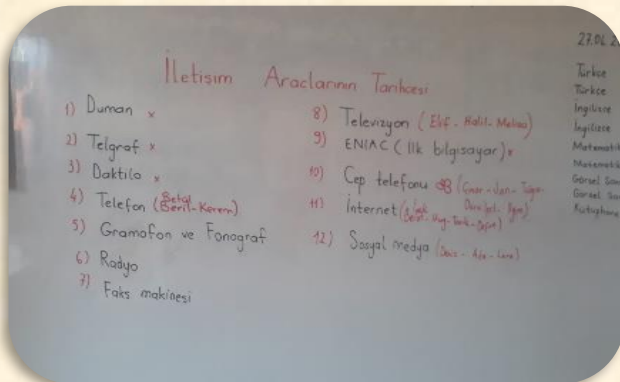 27.06
İletişim Araçlarının Tarihçesi
1) Duman x
2) Telgraf x
3) Daktilo x
4) Telefon (Betal Beril-Kerem)
5) Gramofon ve Fonograf
6) Radyo
7) Faks makinesi
8) Televizyon (Elif - Halil - Melisa)
9) ENIAC (İlk bilgisayar) x
10) Cep telefonu
11) İnternet
12) Sosyal medya
Türkçe
Türkçe
İngilizce
İngilizce
Matematik
Matematik
Görsel San
Görsel San
Kütüphane